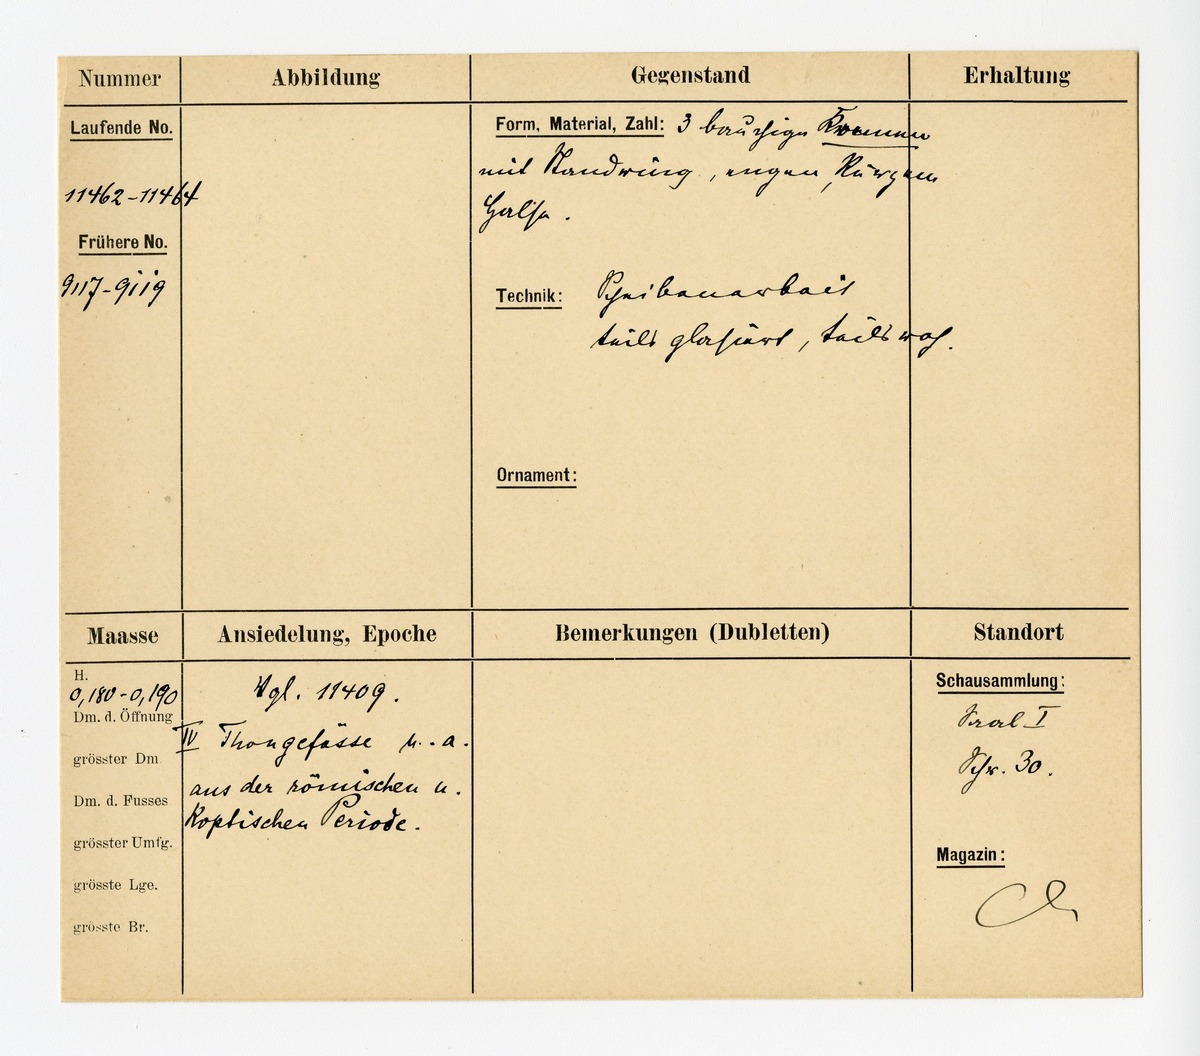 Nummer
Abbildung
Gegenstand
Erhaltung
Laufende No.
11462-11464
Frühere No.
9117-9119
Form, Material, Zahl: 3 bauchige
mit Standring, engen, kurzen
Halse.
Technik: Scheibenarbeit
teils glasiert, teils roh.
Ornament:
Maasse
Ansiedelung, Epoche
Bemerkungen (Dubletten)
Standort
H.
0,180-0,190
Dm. d. Öffnung
grösster Dm
Dm. d. Fusses
grösster Umfg.
grösste Lge.
grösste Br.
Vgl. 11409.
IV Thongefässe u. a.
aus der römischen u.
koptischen Periode.
Schausammlung:
Saal I
Schr. 30.
Magazin: